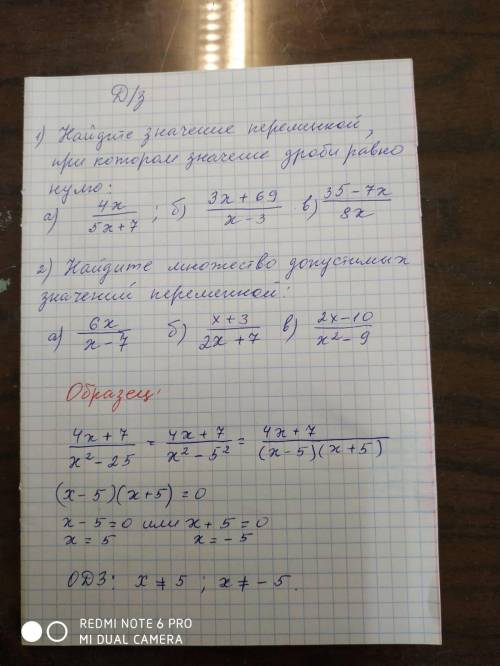 Д/з
1) Найдите значение переменной,
при котором значение дроби равно
нулю:
а) 4x / 5x+7 ; б) 3x+69 / x-3 в) 35-7x / 8x
2) Найдите множество допустимых
значений переменной:
а) 6x / x-7 б) x+3 / 2x+7 в) 2x-10 / x²-9
Образец:
4x+7 / x²-25 = 4x+7 / x²-5² = 4x+7 / (x-5)(x+5)
(x-5)(x+5)=0
x-5=0 или x+5=0
x=5 x=-5
ОДЗ: x≠5 ; x≠-5.
REDMI NOTE 6 PRO
MI DUAL CAMERA